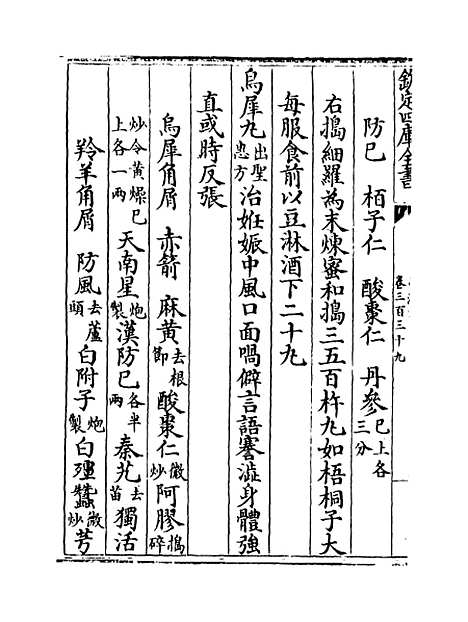 欽定四庫全書
卷三百三十九
防已 栢子仁 酸棗仁 丹參已上各三分
右搗細羅為末煉蜜和搗三五百杵丸如梧桐子大
每服食前以豆淋酒下二十九
烏犀丸出聖惠方治妊娠中風口面喎僻言語蹇澁身體強
直或時反張
烏犀角屑 赤箭 麻黃去根節 酸棗仁微炒 阿膠搗碎
炒令黃燥已上各一兩 天南星炮製 漢防已各半兩 秦艽去苗 獨活
羚羊角屑 防風去蘆頭 白附子炮製 白殭蠶微炒 芎